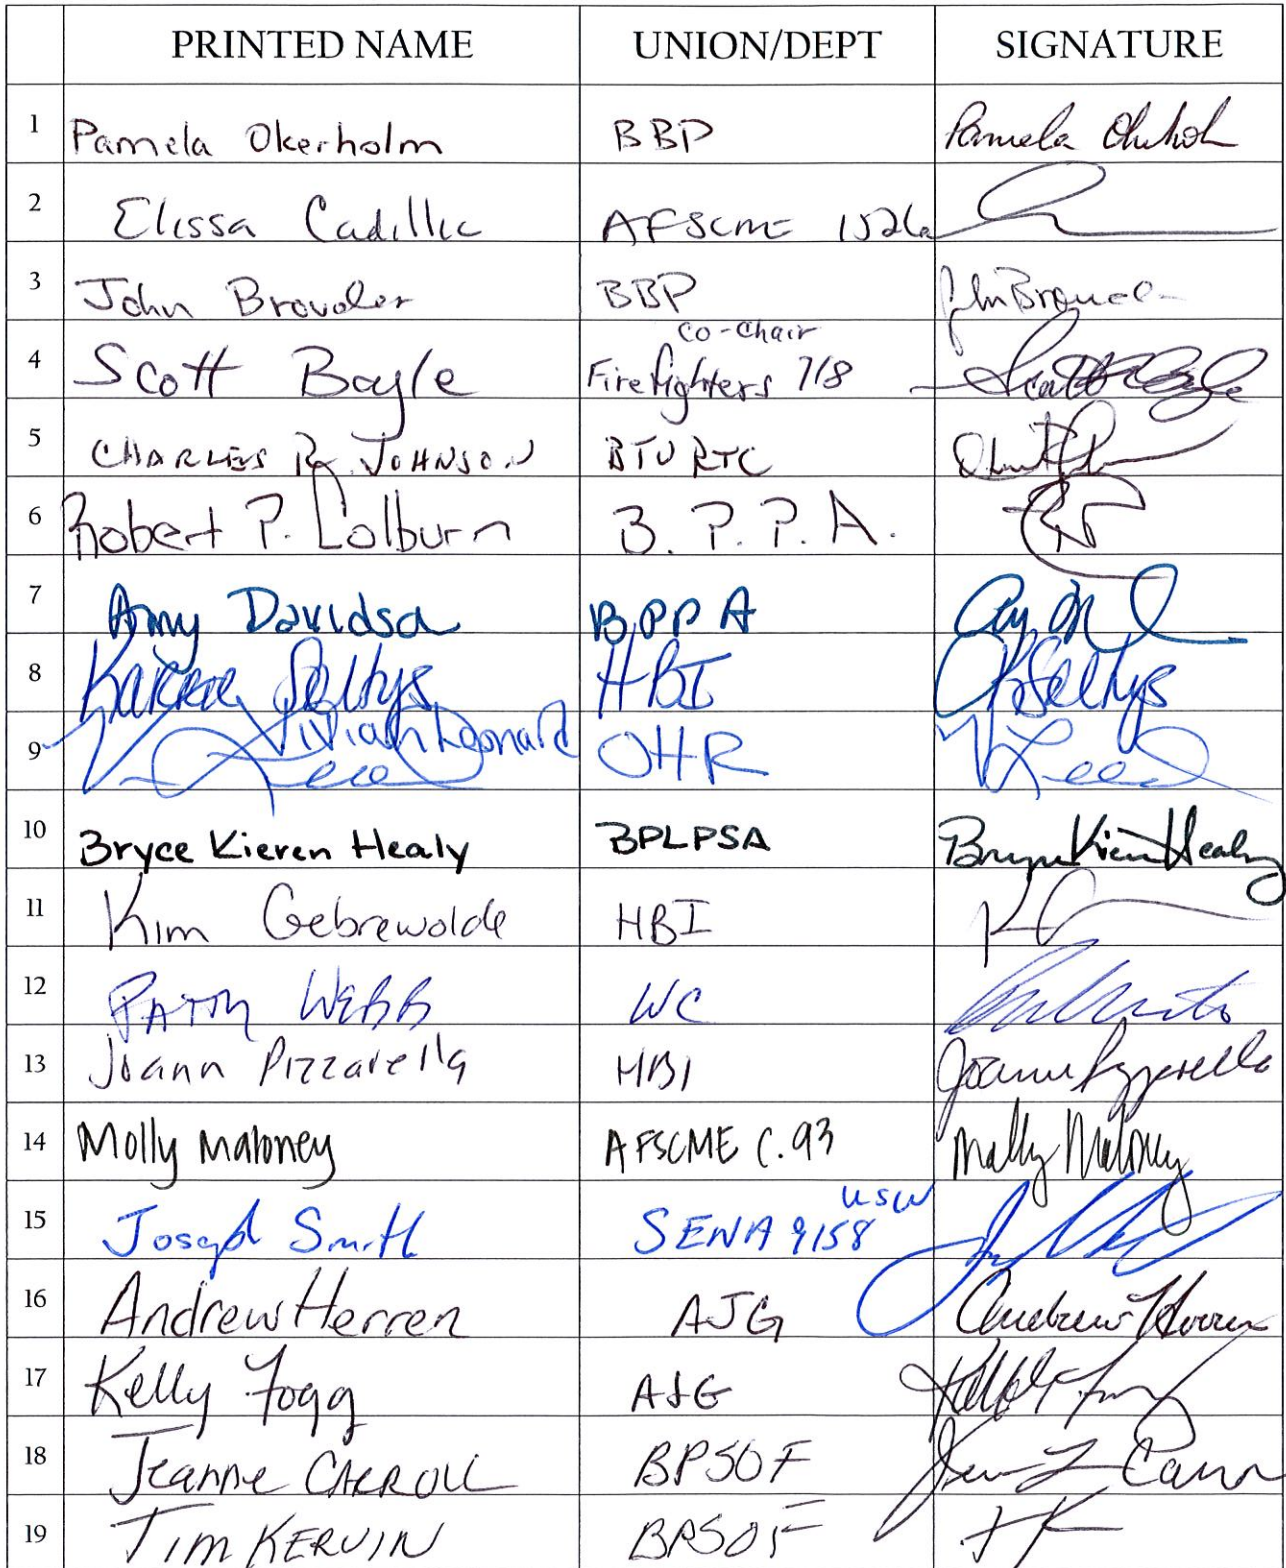 PRINTED NAME UNION/DEPT SIGNATURE
1 Pamela Okerholm BBP Pamela
2 Elissa Cadillic AFSCME 1526
3 John Broudler BBP John
Co-Chair
4 Scott Boyle Firefighters 718 Scott Boyle
5 CHARLES R. JOHNSON BTU RTC
6 Robert P. Colburn B.P.P.A.
7 Amy Davidson BPPA
8 Karene Soltys HBI KSoltys
9 Vivian Leonard OHR
10 Bryce Kieren Healy BPLPSA Bryce Kieren Healy
11 Kim Gebrewolde HBI
12 PATTY WEBB WC
13 Joann Pizzarella HBI Joann Pizzarella
14 Molly Maloney AFSCME C.93 Molly Maloney
USW
15 Joseph Smith SENA 9158
16 Andrew Herren AJG Andrew Herren
17 Kelly Fogg AJG
18 Jeanne CARROLL BPSOF
19 TIM KERVIN BPSOF